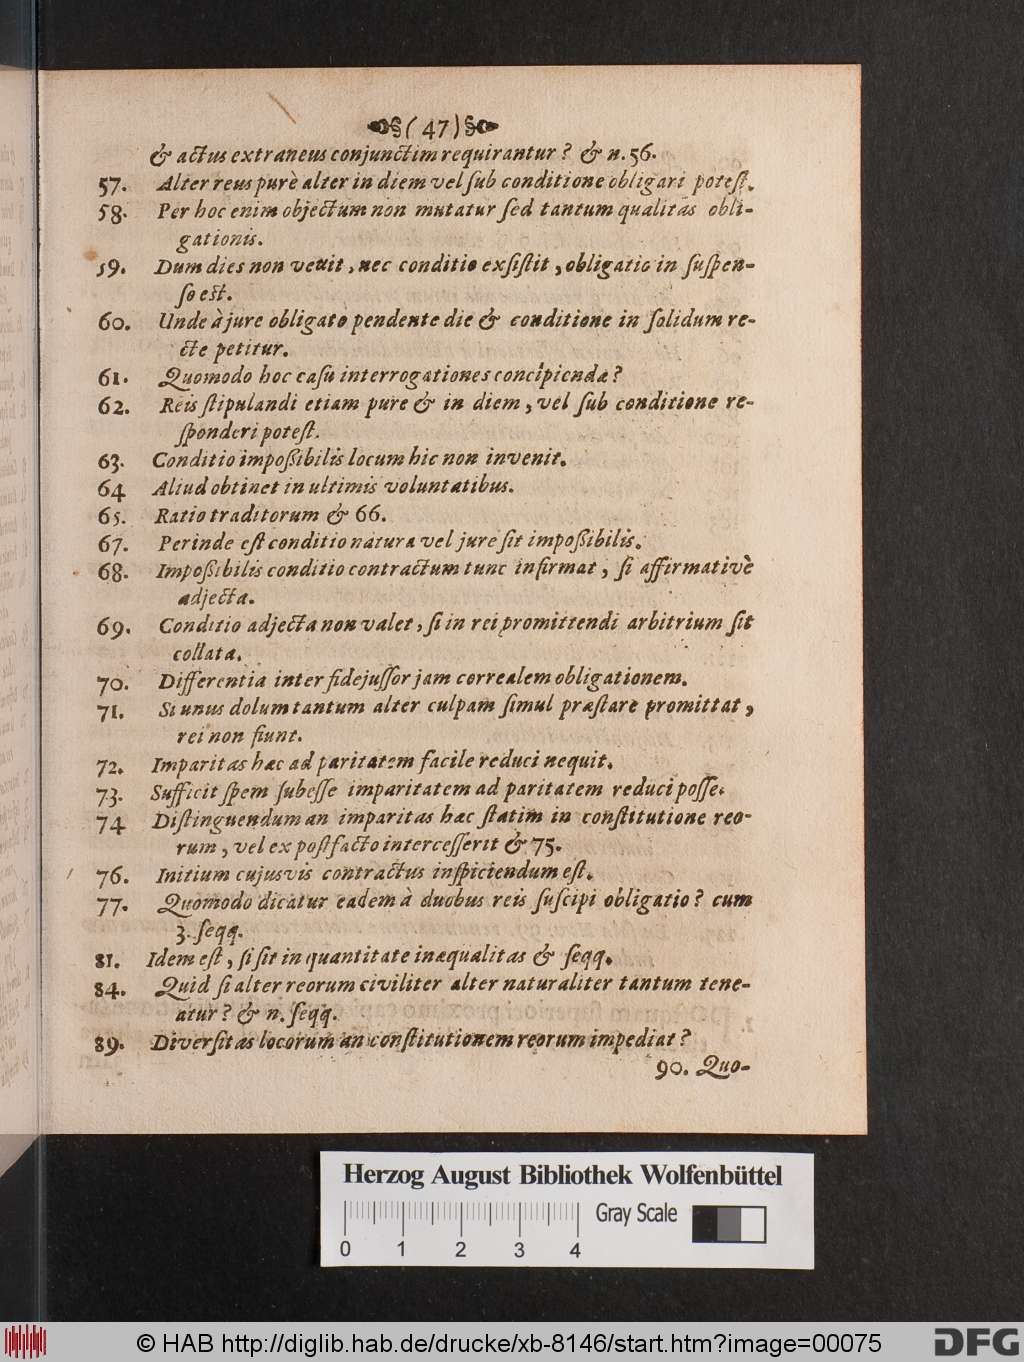 (47)
& actus extraneus conjunctim requirantur? & n. 56.
57. Alter reus purè alter in diem vel ſub conditione obligari poteſt.
58. Per hoc enim objectum non mutatur ſed tantum qualitas obli-
gationis.
59. Dum dies non venit, nec conditio exſiſtit, obligatio in ſuſpen-
ſo eſt.
60. Unde à jure obligato pendente die & conditione in ſolidum re-
cte petitur.
61. Quomodo hoc caſu interrogationes concipiendæ?
62. Reis ſtipulandi etiam pure & in diem, vel ſub conditione re-
ſponderi poteſt.
63. Conditio impoßibilis locum hic non invenit.
64 Aliud obtinet in ultimis voluntatibus.
65. Ratio traditorum & 66.
67. Perinde eſt conditio natura vel jure ſit impoßibilis.
68. Impoßibilis conditio contractum tunc infirmat, ſi affirmativè
adjecta.
69. Conditio adjecta non valet, ſi in rei promittendi arbitrium ſit
collata.
70. Differentia inter fidejuſſorjam correalem obligationem.
71. Si unus dolum tantum alter culpam ſimul præſtare promittat,
rei non fiunt.
72. Imparitas hæc ad paritatem facile reduci nequit.
73. Sufficit ſpem ſubeſſe imparitatem ad paritatem reduci poſſe.
74 Diſtinguendum an imparitas hæc ſtatim in conſtitutione reo-
rum, vel ex poſtfacto interceſſerit & 75.
76. Initium cujusvis contractus inſpiciendum eſt.
77. Quomodo dicatur eadem à duobus reis ſuſcipi obligatio? cum
3. ſeqq.
81. Idem eſt, ſi ſit in quantitate inæqualitas & ſeqq.
84. Quid ſi alter reorum civiliter alter naturaliter tantum tene-
atur? & n. ſeqq.
89. Diverſitas locorum an conſtitutionem reorum impediat?
90. Quo-
Herzog August Bibliothek Wolfenbüttel
Gray Scale
0 1 2 3 4
© HAB http://diglib.hab.de/drucke/xb-8146/start.htm?image=00075
DFG